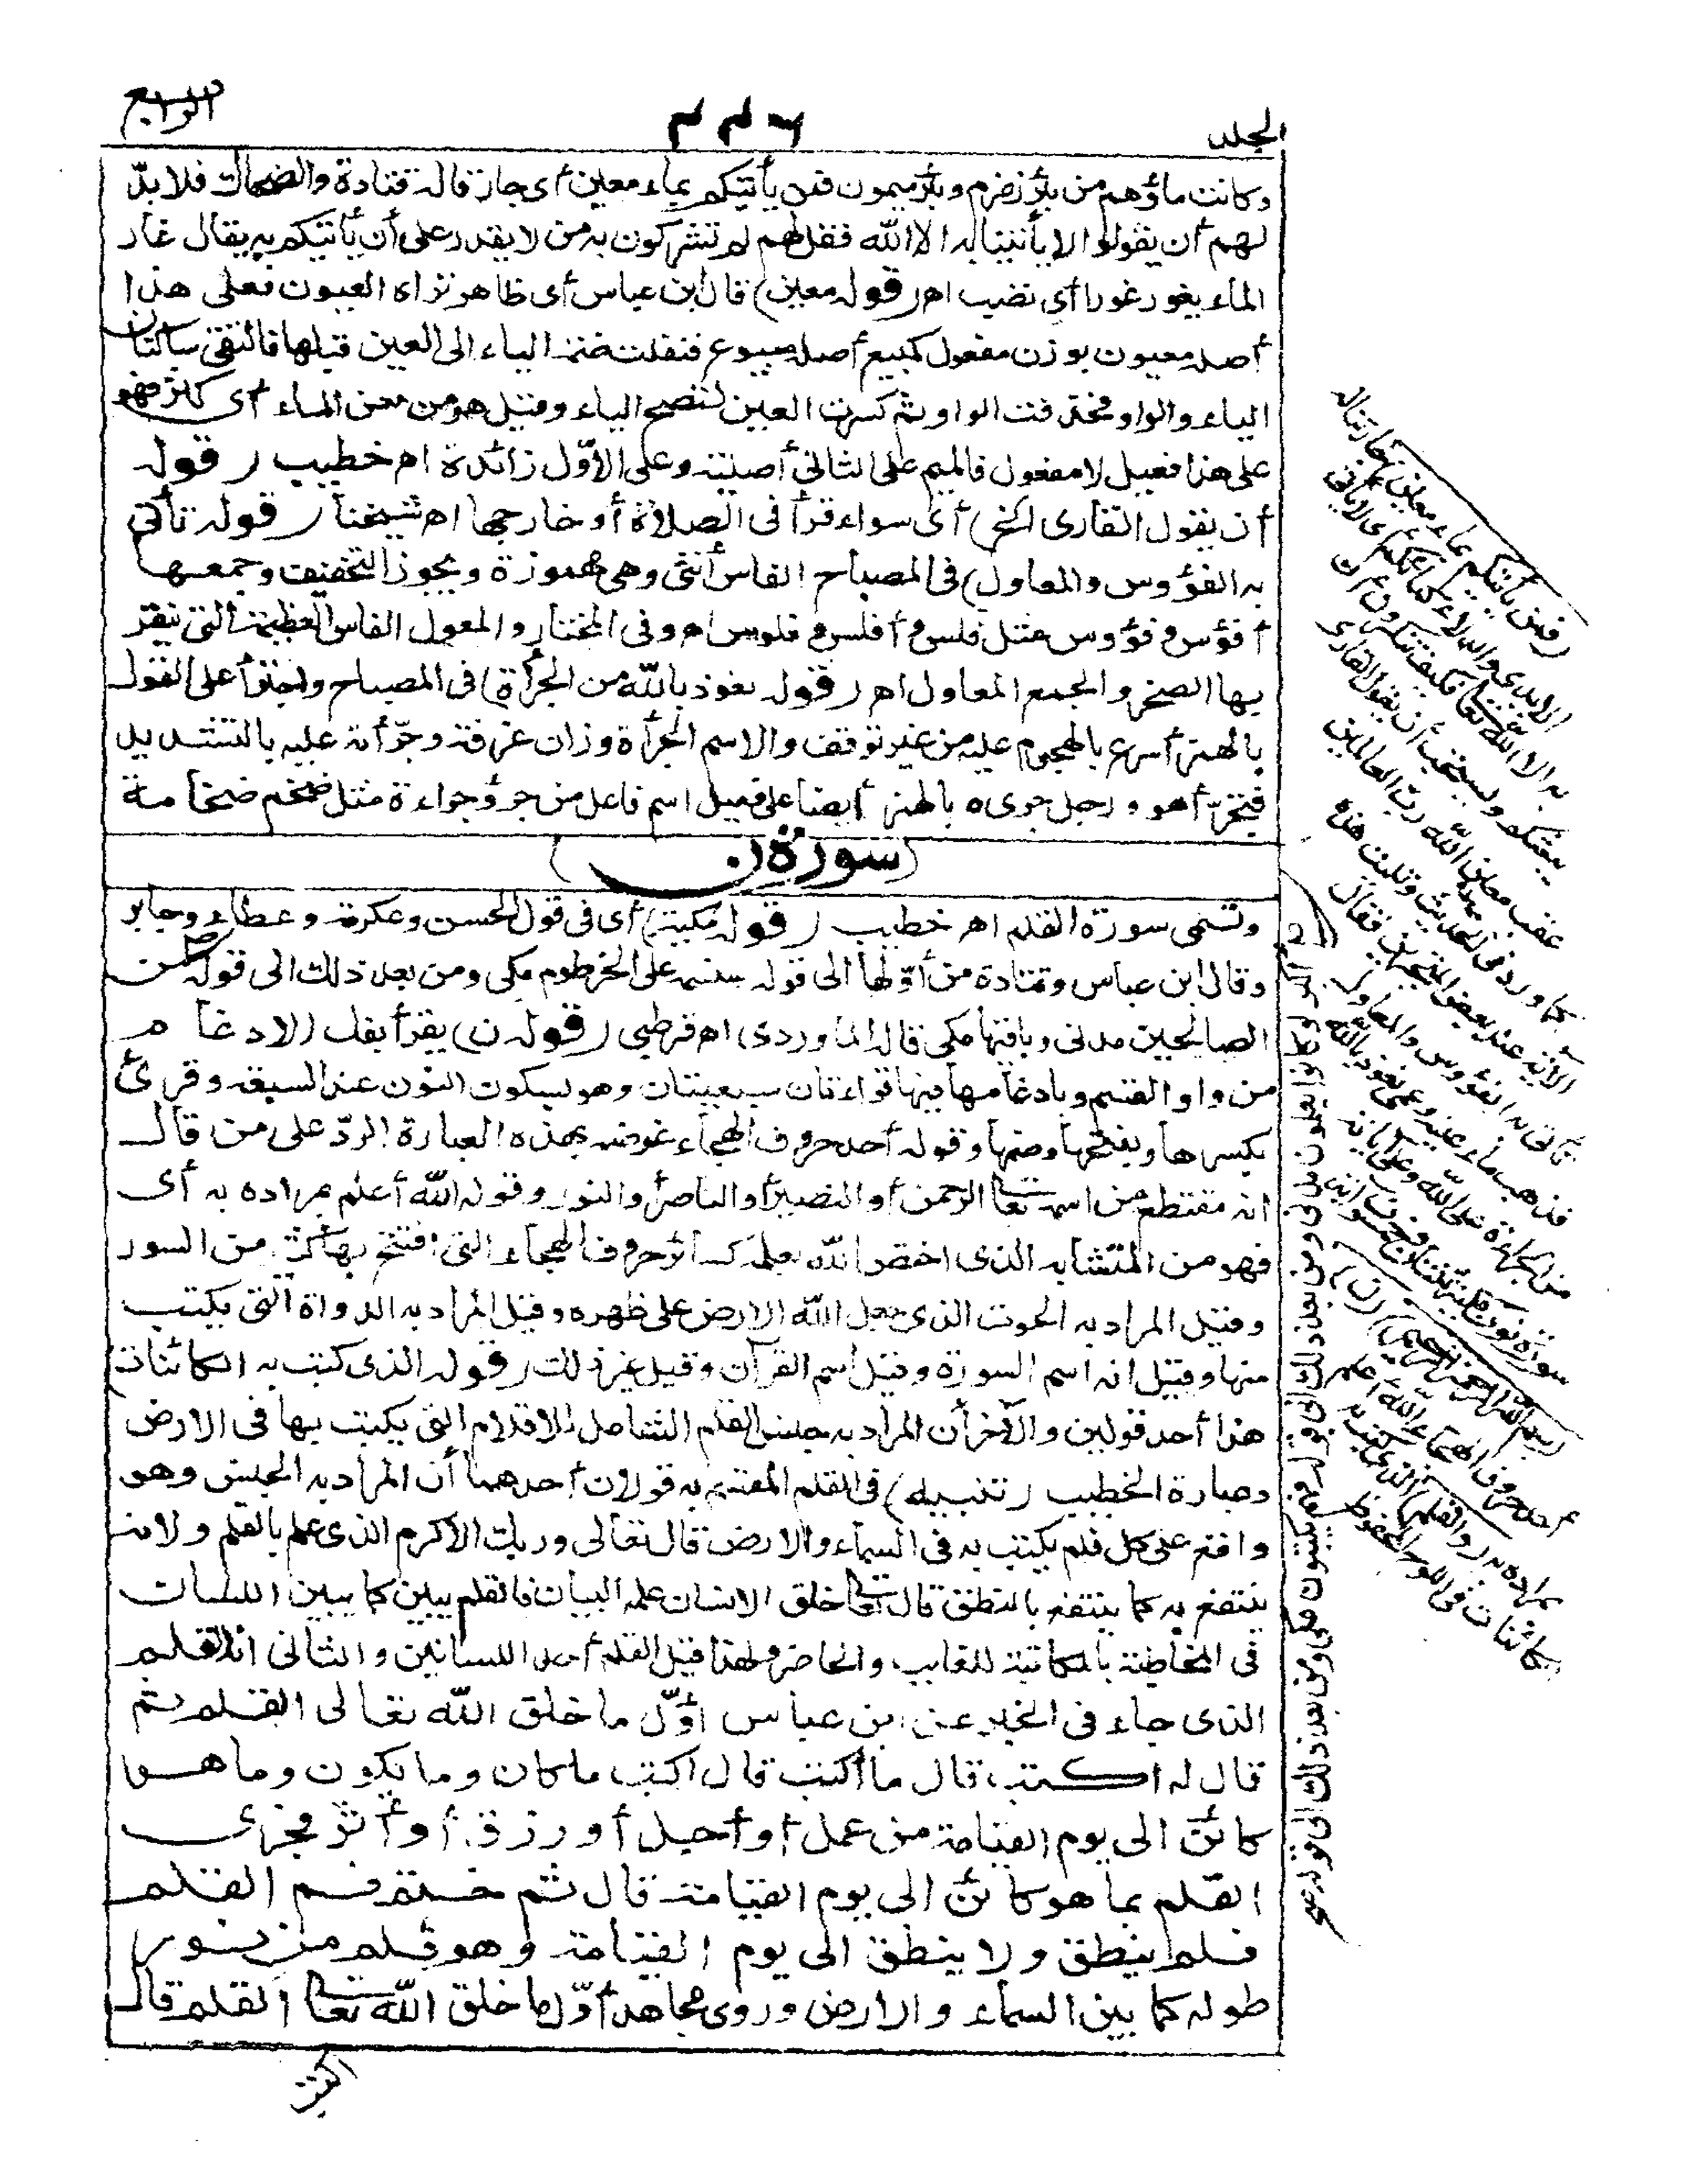 الجلد
٤٤٦
الرابع
وكانت ماؤهم من بئر زمزم وبئر ميمون فمن يأتيكم بماء معين أى جار قاله قتادة والضحاك فلا بدّ
لهم أن يقولوا لا يأتينا به الا الله فقل لهم لم تشركون به من لا يقدر على أن يأتيكم به يقال غار
الماء يغور غورا أى نضب اه (قوله معين) قال ابن عباس أى ظاهر تراه العيون فعلى هذا
أصله معيون بوزن مفعول كمبيع أصله مبيوع فنقلت ضمة الياء الى العين قبلها فالتقى ساكنان
الياء والواو فحذفت الواو ثم كسرت العين لتصح الياء وقيل هو من معن الماء أى كثر فهو
على هذا فعيل لا مفعول فالميم على الثانى أصلية وعلى الأوّل زائدة اه خطيب (قوله
أن يقول القارى الخ) أى سواء قرأ فى الصلاة أو خارجها اه شيخنا (قوله تأتى
به الفؤوس والمعاول) فى المصباح الفاس أنثى وهى مهموزة ويجوز التخفيف وجمعها
أفؤس وفؤوس مثل فلس وأفلس وفلوس اه وفى المختار والمعول الفاس العظيمة التى ينقر
بها الصخر والجمع المعاول اه (قوله نعوذ بالله من الجرأة) فى المصباح واجترأ على القول
بالهمز أسرع بالهجوم عليه من غير توقف والاسم الجرأة وزان غرفة وجرّأته عليه بالتشديد
فتجرّأ هو ورجل جرىء بالهمز أيضا على فعيل اسم فاعل من جرؤ جراءة مثل ضخم ضخامة
(سورة ن)
وتسمى سورة القلم اه خطيب (قوله مكية) أى فى قول الحسن وعكرمة وعطاء وجابر
وقال ابن عباس وقتادة من أوّلها الى قوله سنسمه على الخرطوم مكى ومن بعد ذلك الى قوله من
الصالحين مدنى وباقيها مكى قاله الماوردى اه قرطبى (قوله ن) يقرأ بفك الادغام
من واو القسم وبادغامها فيها قراءتان سبعيتان وهو بسكون النون عند السبعة وقرئ
بكسرها وبفتحها وضمها وقوله أحد حروف الهجاء غرضه بهذه العبارة الردّ على من قال
انه مقتطع من اسمه تعالى الرحمن أو النصير أو الناصر أو النور وقوله الله أعلم بمراده به أى
فهو من المتشابه الذى اختص الله بعلمه كسائر حروف الهجاء التى افتتح بها كثير من السور
وقيل المراد به الحوت الذى جعل الله الارض على ظهره وقيل المراد به الدواة التى يكتب
منها وقيل انه اسم السورة وقيل اسم القرآن وقيل غير ذلك (قوله الذى كتب به الكائنات)
هذا أحد قولين والآخر أن المراد به جنس القلم الشامل للاقلام التى يكتب بها فى الارض
وعبارة الخطيب (تنبيه) فى القلم المقسم به قولان أحدهما أن المراد به الجنس وهو
واقع على كل قلم يكتب به فى السماء والارض قال تعالى وربك الأكرم الذى علم بالقلم ولانه
ينتفع به كما ينتفع بالنطق قال تعالى خلق الانسان علمه البيان فالقلم يبين كما يبين اللسان
فى المخاطبة بالمكاتبة للغايب والحاضر ولهذا قيل القلم أحد اللسانين والثانى انه القلم
الذى جاء فى الخبر عن ابن عباس أوّل ما خلق الله تعالى القلم ثم
قال له اكتب قال ما أكتب قال اكتب ما كان وما يكون وما هو
كائن الى يوم القيامة من عمل أو أجل أو رزق أو أثر فجرى
القلم بما هو كائن الى يوم القيامة قال ثم ختم فم القلم
فلم ينطق ولا ينطق الى يوم القيامة وهو قلم من نور
طوله كما بين السماء والارض وروى مجاهد أوّل ما خلق الله تعالى القلم قال
اكتب
(فمن يأتيكم بماء معين) جار تناله
الايدى والدلاء كمائكم أى لا يأتى
به الا الله تعالى فكيف تنكرون أن
يبعثكم ويستحب أن يقول القارى
عقب معين الله رب العالمين
كما ورد فى الحديث وتليت هذه
الآية عند بعض المتجبرين فقال
تأتى به الفؤوس والمعاول
فذهب ماء عينه وعمى نعوذ بالله
من الجرأة على الله وعلى آياته
سورة ن مكية ثنتان وخمسون آية
(بسم الله الرحمن الرحيم) (ن)
أحد حروف الهجاء الله أعلم
بمراده به (والقلم) الذى كتب به
الكائنات فى اللوح المحفوظ
مدنى ومن بعد ذلك الى قوله يكتبون مكى ومن بعد ذلك الى قوله